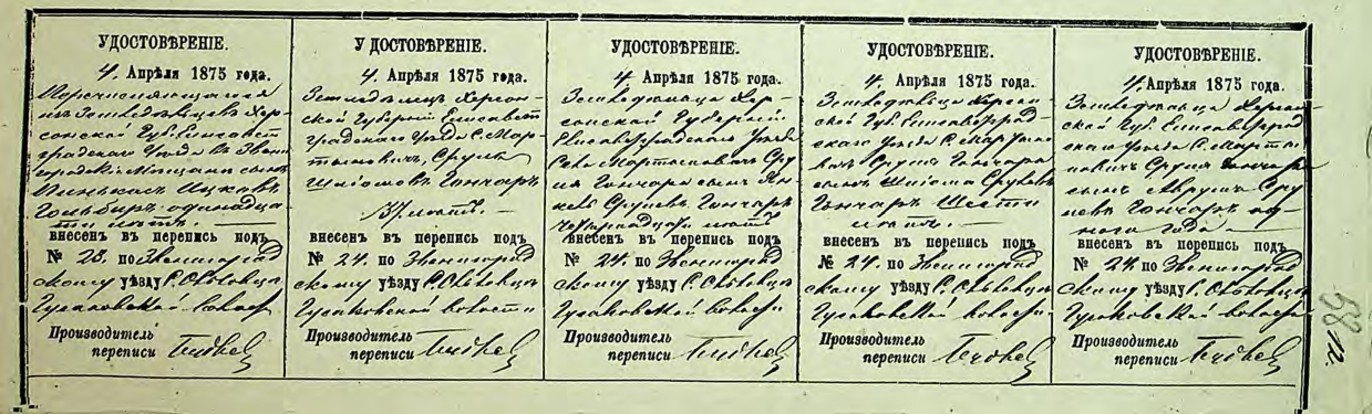 УДОСТОВѢРЕНІЕ.
4. Апрѣля 1875 года.
Перечисляющагося
изъ Земледѣльцевъ Хер-
сонской Губ. Елисавет
градскаго Уѣзда въ Звени
городскіе Мѣщане сынъ
одинадца-
ти лѣтъ
внесенъ въ перепись подъ
№ 23. по Звенигород
скому уѣзду С.
Гусаковской волости
Производитель
переписи
У ДОСТОВѢРЕНІЕ.
4. Апрѣля 1875 года.
Земледѣлецъ Херсон-
ской Губерніи Елисавет
градскаго Уѣзда С. Мар-
тыновихъ, Сруль
Шліомовъ Гончаръ
37 лѣтъ.
внесенъ въ перепись подъ
№ 24. по Звенигород
скому уѣзду С.
Гусаковской волости
Производитель
переписи
УДОСТОВѢРЕНІЕ.
4 Апрѣля 1875 года.
Земледѣльца Хер-
сонской Губерніи
Елисаветградскаго Уѣзда
Села Сру
ля Гончара сынъ Ян-
кель Срулевъ Гончаръ
Четырнадцати лѣтъ
внесенъ въ перепись подъ
№ 24. по Звенигород
скому уѣзду С.
Гусаковской волости
Производитель
переписи
УДОСТОВѢРЕНІЕ.
4 Апрѣля 1875 года.
Земледѣльца Херсон-
ской Губ. Елисаветград-
скаго Уѣзда С.
Сруля Гончара
сынъ Шліома Срулевъ
Гончаръ Шести
лѣтъ.
внесенъ въ перепись подъ
№ 24. по Звенигород
скому уѣзду С.
Гусаковской волости
Производитель
переписи
УДОСТОВѢРЕНІЕ.
4. Апрѣля 1875 года.
Земледѣльца Херсон-
ской Губ. Елисаветград
скаго Уѣзда С.
Сруля Гончара
сынъ Аврумъ Сру
левъ Гончаръ од-
ного года.
внесенъ въ перепись подъ
№ 24 по Звенигород
скому уѣзду С.
Гусаковской волости
Производитель
переписи